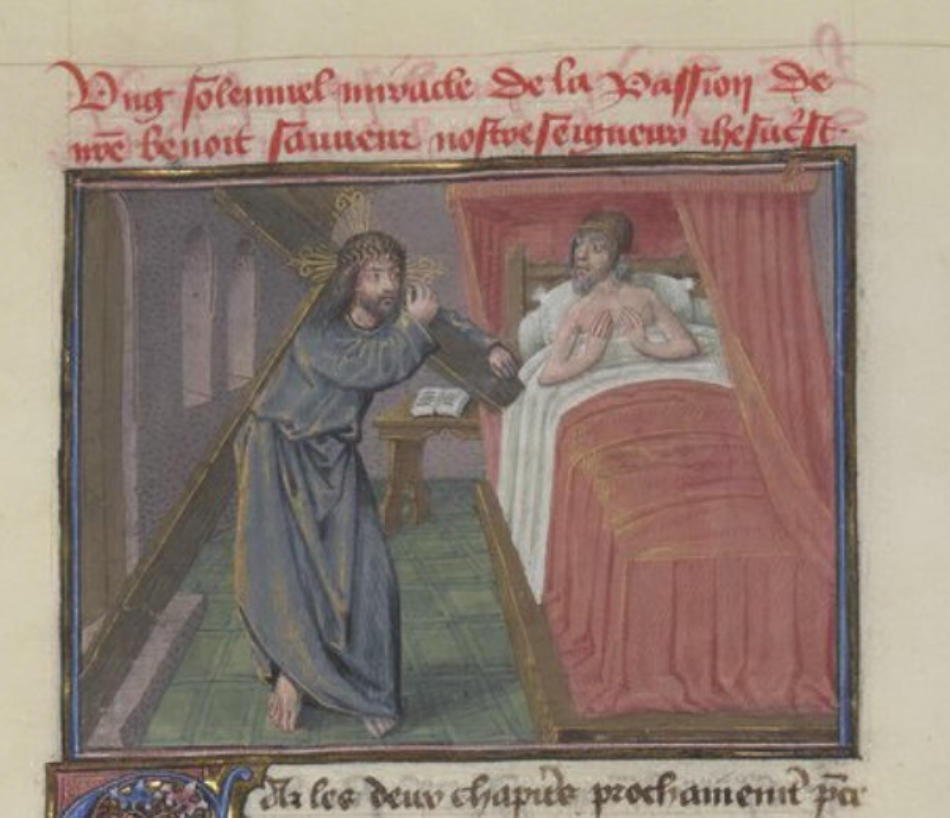 Vng solennel miracle De la Passion De
nr̄e benoit sauueur nostre seigneur ihesucr̄st.
Par les deux chapitr̄s prochainemt̄ p̄ce